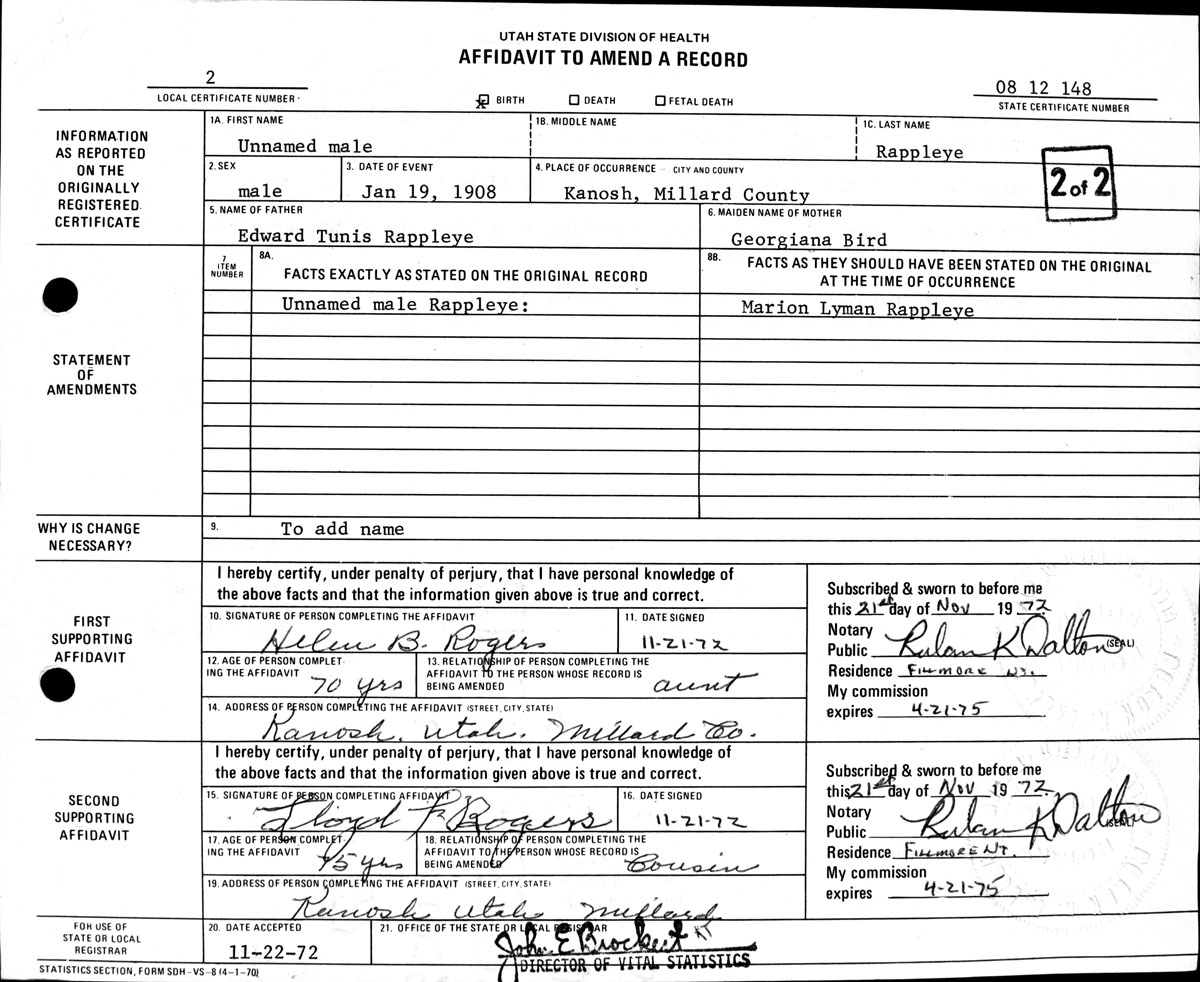 UTAH STATE DIVISION OF HEALTH
AFFIDAVIT TO AMEND A RECORD
2
LOCAL CERTIFICATE NUMBER
X BIRTH DEATH FETAL DEATH
08 12 148
STATE CERTIFICATE NUMBER
INFORMATION
AS REPORTED
ON THE
ORIGINALLY
REGISTERED
CERTIFICATE
1A. FIRST NAME 1B. MIDDLE NAME 1C. LAST NAME
Unnamed male Rappleye
2. SEX 3. DATE OF EVENT 4. PLACE OF OCCURRENCE - CITY AND COUNTY
male Jan 19, 1908 Kanosh, Millard County
2 of 2
5. NAME OF FATHER 6. MAIDEN NAME OF MOTHER
Edward Tunis Rappleye Georgiana Bird
STATEMENT
OF
AMENDMENTS
7
ITEM
NUMBER
8A.
FACTS EXACTLY AS STATED ON THE ORIGINAL RECORD
8B. FACTS AS THEY SHOULD HAVE BEEN STATED ON THE ORIGINAL
AT THE TIME OF OCCURRENCE
Unnamed male Rappleye: Marion Lyman Rappleye
WHY IS CHANGE
NECESSARY?
9. To add name
FIRST
SUPPORTING
AFFIDAVIT
I hereby certify, under penalty of perjury, that I have personal knowledge of
the above facts and that the information given above is true and correct.
10. SIGNATURE OF PERSON COMPLETING THE AFFIDAVIT 11. DATE SIGNED
Helen B. Rogers 11-21-72
12. AGE OF PERSON COMPLETING THE AFFIDAVIT
70 yrs
13. RELATIONSHIP OF PERSON COMPLETING THE
AFFIDAVIT TO THE PERSON WHOSE RECORD IS
BEING AMENDED aunt
14. ADDRESS OF PERSON COMPLETING THE AFFIDAVIT (STREET, CITY, STATE)
Kanosh, Utah. Millard Co.
Subscribed & sworn to before me
this 21st day of Nov 19 72
Notary
Public Rulan K Dalton (SEAL)
Residence FILLMORE UT.
My commission
expires 4-21-75
SECOND
SUPPORTING
AFFIDAVIT
I hereby certify, under penalty of perjury, that I have personal knowledge of
the above facts and that the information given above is true and correct.
15. SIGNATURE OF PERSON COMPLETING AFFIDAVIT 16. DATE SIGNED
Lloyd Rogers 11-21-72
17. AGE OF PERSON COMPLETING THE AFFIDAVIT
yrs
18. RELATIONSHIP OF PERSON COMPLETING THE
AFFIDAVIT TO THE PERSON WHOSE RECORD IS
BEING AMENDED Cousin
19. ADDRESS OF PERSON COMPLETING THE AFFIDAVIT (STREET, CITY, STATE)
Kanosh Utah Millard
Subscribed & sworn to before me
this 21st day of Nov 19 72
Notary
Public Rulan K Dalton (SEAL)
Residence FILLMORE UT.
My commission
expires 4-21-75
FOR USE OF
STATE OR LOCAL
REGISTRAR
20. DATE ACCEPTED
11-22-72
21. OFFICE OF THE STATE OR LOCAL REGISTRAR
John E Brockert
DIRECTOR OF VITAL STATISTICS
STATISTICS SECTION, FORM SDH-VS-8 (4-1-70)